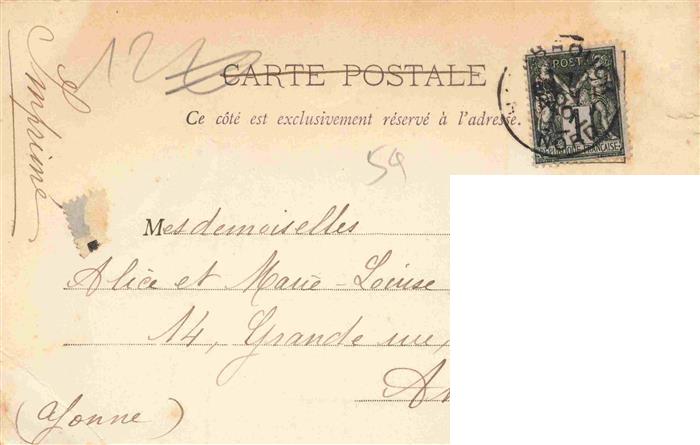 Imprimé
12
CARTE POSTALE
Ce côté est exclusivement réservé à l'adresse.
POSTES
1
REPUBLIQUE FRANÇAISE
54
Mesdemoiselles
Alice et Marie-Louise
14, Grande rue,
(Yonne)